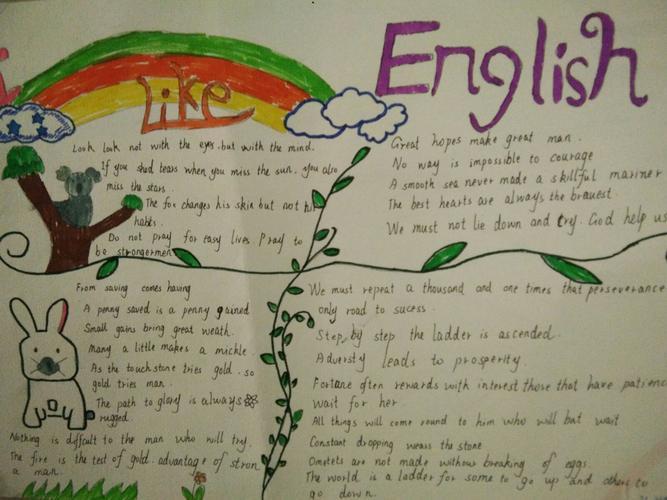 i
Like
English
Look look not with the eyes. but with the mind.
If you shed tears when you miss the sun. you also
miss the stars.
The fox changes his skin but not his
habits.
Do not pray for easy lives. Pray to
be strongermen
Great hopes make great man.
No way is impossible to courage
A smooth sea never made a skillful mariner
The best hearts are always the bravest.
We must not lie down and cry. God help us
From saving comes having
A penny saved is a penny gained
Small gains bring great weath.
many a little makes a mickle
As the touchstone tries gold. so
gold tries man.
The path to glory is always
rugged.
Nothing is diffcult to the man who will try.
The fire is the test of gold. advantage of stron
a man.
We must repeat a thousand and one times that perseverance
only road to sucess.
Step by step the ladder is ascended.
Adversty leads to prosperity.
Fortune often rewards with interest those that have patienc
wait for her.
All things will come round to him who will but wait
Constant dropping wears the stone
Omelets are not made withour breaking of eggs
The world is a ladder for some to go up and others to
go down.